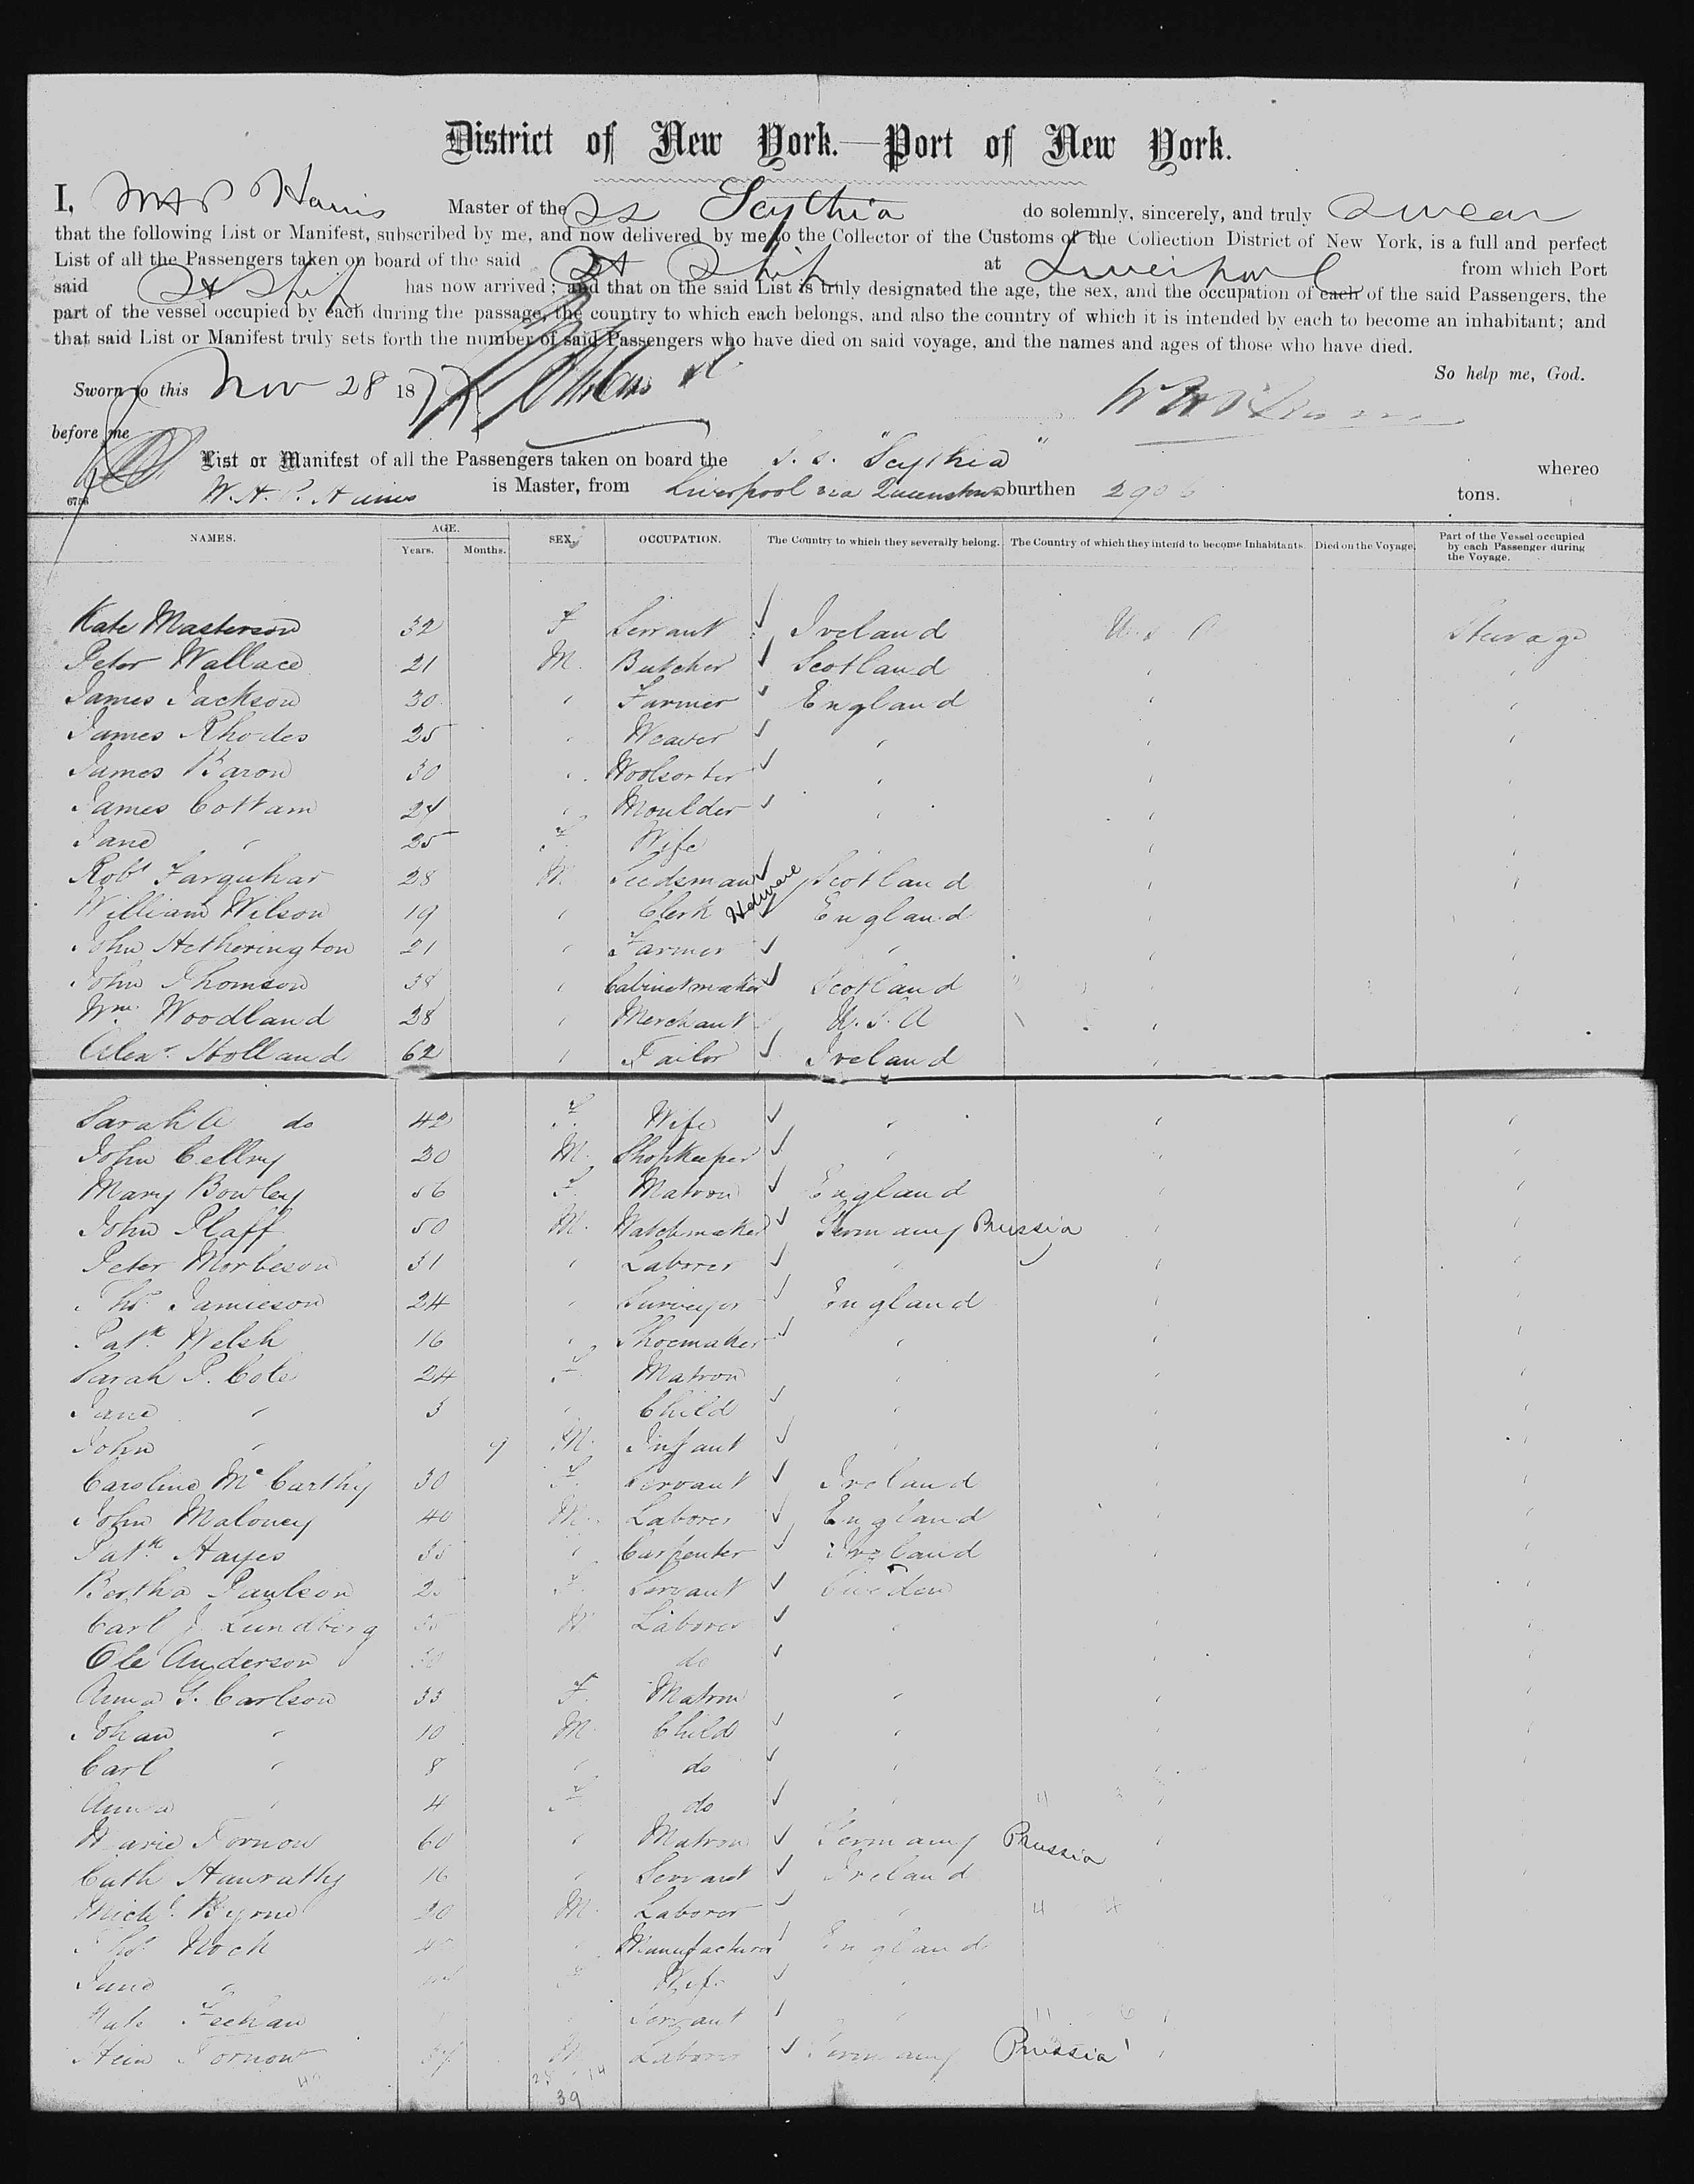 District of New York.—Port of New York.
I, W H P Hains Master of the SS Scythia do solemnly, sincerely, and truly swear
that the following List or Manifest, subscribed by me, and now delivered by me to the Collector of the Customs of the Collection District of New York, is a full and perfect
List of all the Passengers taken on board of the said St Ship at Liverpool from which Port
said St Ship has now arrived; and that on the said List is truly designated the age, the sex, and the occupation of each of the said Passengers, the
part of the vessel occupied by each during the passage, the country to which each belongs, and also the country of which it is intended by each to become an inhabitant; and
that said List or Manifest truly sets forth the number of said Passengers who have died on said voyage, and the names and ages of those who have died.
So help me, God.
Sworn to this Nov 28 1877
before me
List or Manifest of all the Passengers taken on board the S. S. "Scythia" whereo
W. H. P. Hains is Master, from Liverpool via Queenstown burthen 2906 tons.
NAMES. AGE. Years. Months. SEX. OCCUPATION. The Country to which they severally belong. The Country of which they intend to become Inhabitants. Died on the Voyage. Part of the Vessel occupied by each Passenger during the Voyage.
Kate Masterson 32 F Servant Ireland U. S. A Steerage
Peter Wallace 21 M. Butcher Scotland
James Jackson 30 " Farmer England
James Rhodes 25 " Weaver "
James Baron 30 " Woolsorter "
James Cottam 24 " Moulder "
Jane " 25 F. Wife
Robt Farquhar 28 M. Seedsman Scotland
William Wilson 19 " Clerk Hdware England
John Hetherington 21 " Farmer "
John Thomson 38 " Cabinetmaker Scotland
Wm. Woodland 28 " Merchant U. S. A
Alexr. Holland 62 " Tailor Ireland
Sarah A do 42 F. Wife "
John Cellry 20 M. Shopkeeper "
Mary Bowley 56 F. Matron England
John Plaff 50 M. Watchmaker Germany Prussia
Peter Morbeson 31 " Laborer "
Thos. Jamieson 24 " Surveyor England
Patk Welsh 16 " Shoemaker "
Sarah P. Cole 24 F. Matron "
Jane " 3 " Child "
John " 9 M. Infant "
Caroline McCarthy 30 F. Servant Ireland
John Maloney 40 M. Laborer England
Patk Hayes 35 " Carpenter Ireland
Bertha Paulson F. Servant Sweden
Carl J Lundberg 35 M Laborer "
Ole Anderson 30 do
Anna G. Carlson 33 F. Matron "
Johan " 10 M. Child "
Carl " 8 " do "
Anna " 4 F. do "
Marie Tornow 60 " Matron Germany Prussia
Cath Hanrathy 16 " Servant Ireland
Michl. Byrne 20 M. Laborer "
Thos. Nock " Manufacturer England
Jane " F Wife "
Kate Feehan Servant "
Hein Tornow 37 M. Laborer Germany Prussia
39